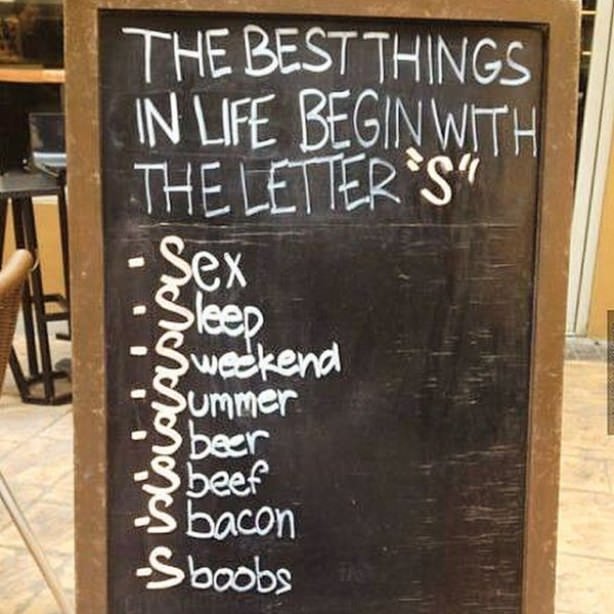 THE BEST THINGS
IN LIFE BEGIN WITH
THE LETTER "S"
- Sex
- Sleep
- Sweekend
- Summer
- Sbeer
- Sbeef
- Sbacon
- Sboobs